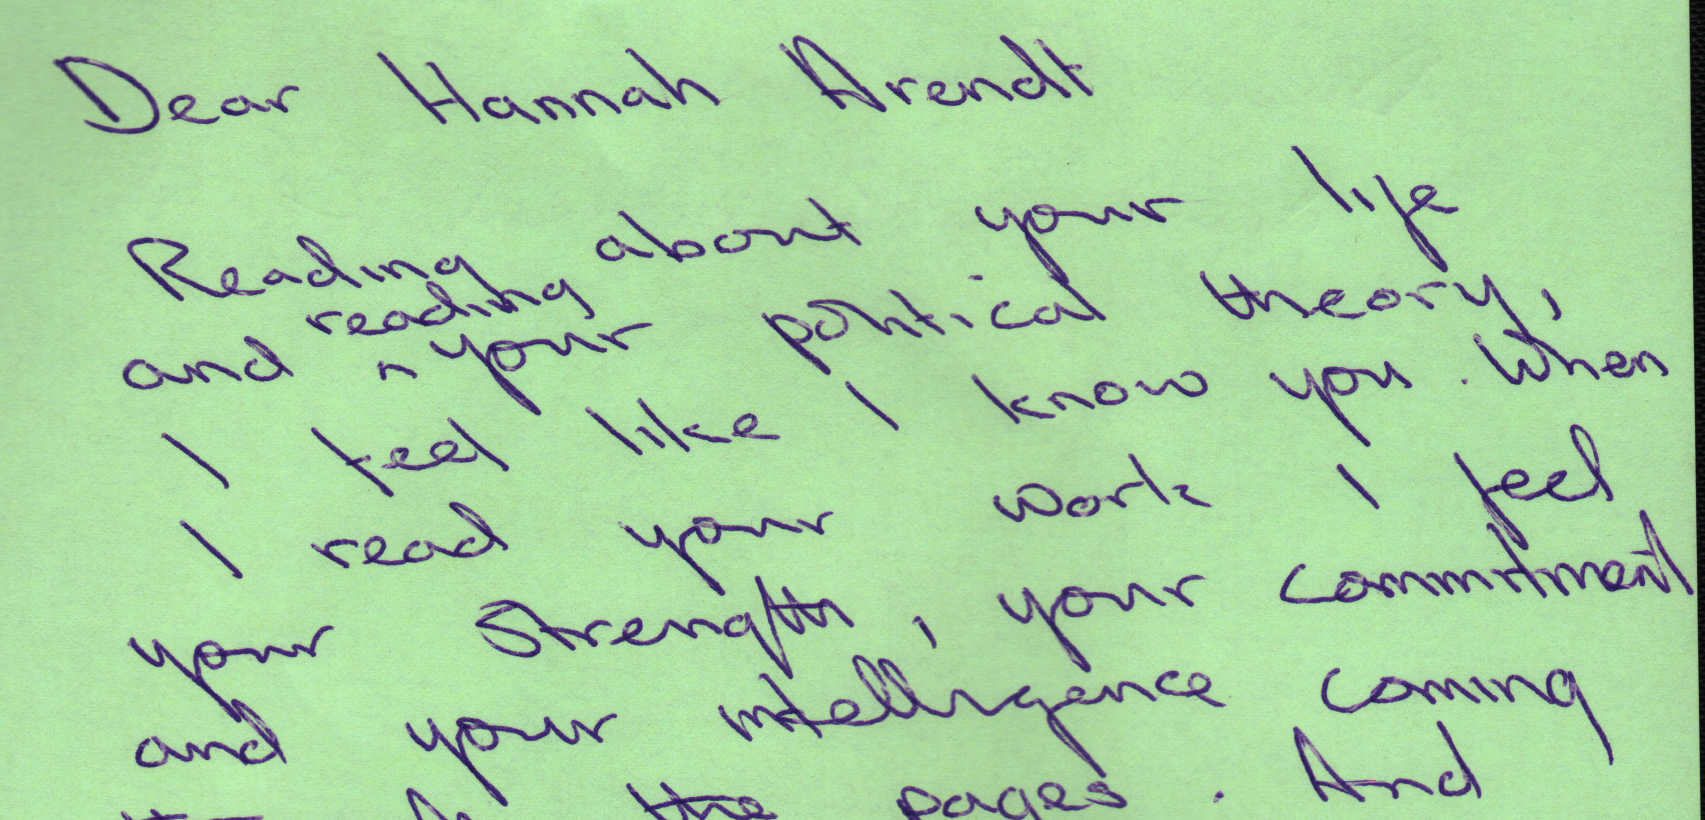 Dear Hannah Arendt
Reading about your life
and reading your political theory,
I feel like I know you. When
I read your work I feel
your strength, your commitment
and your intelligence coming
the pages. And